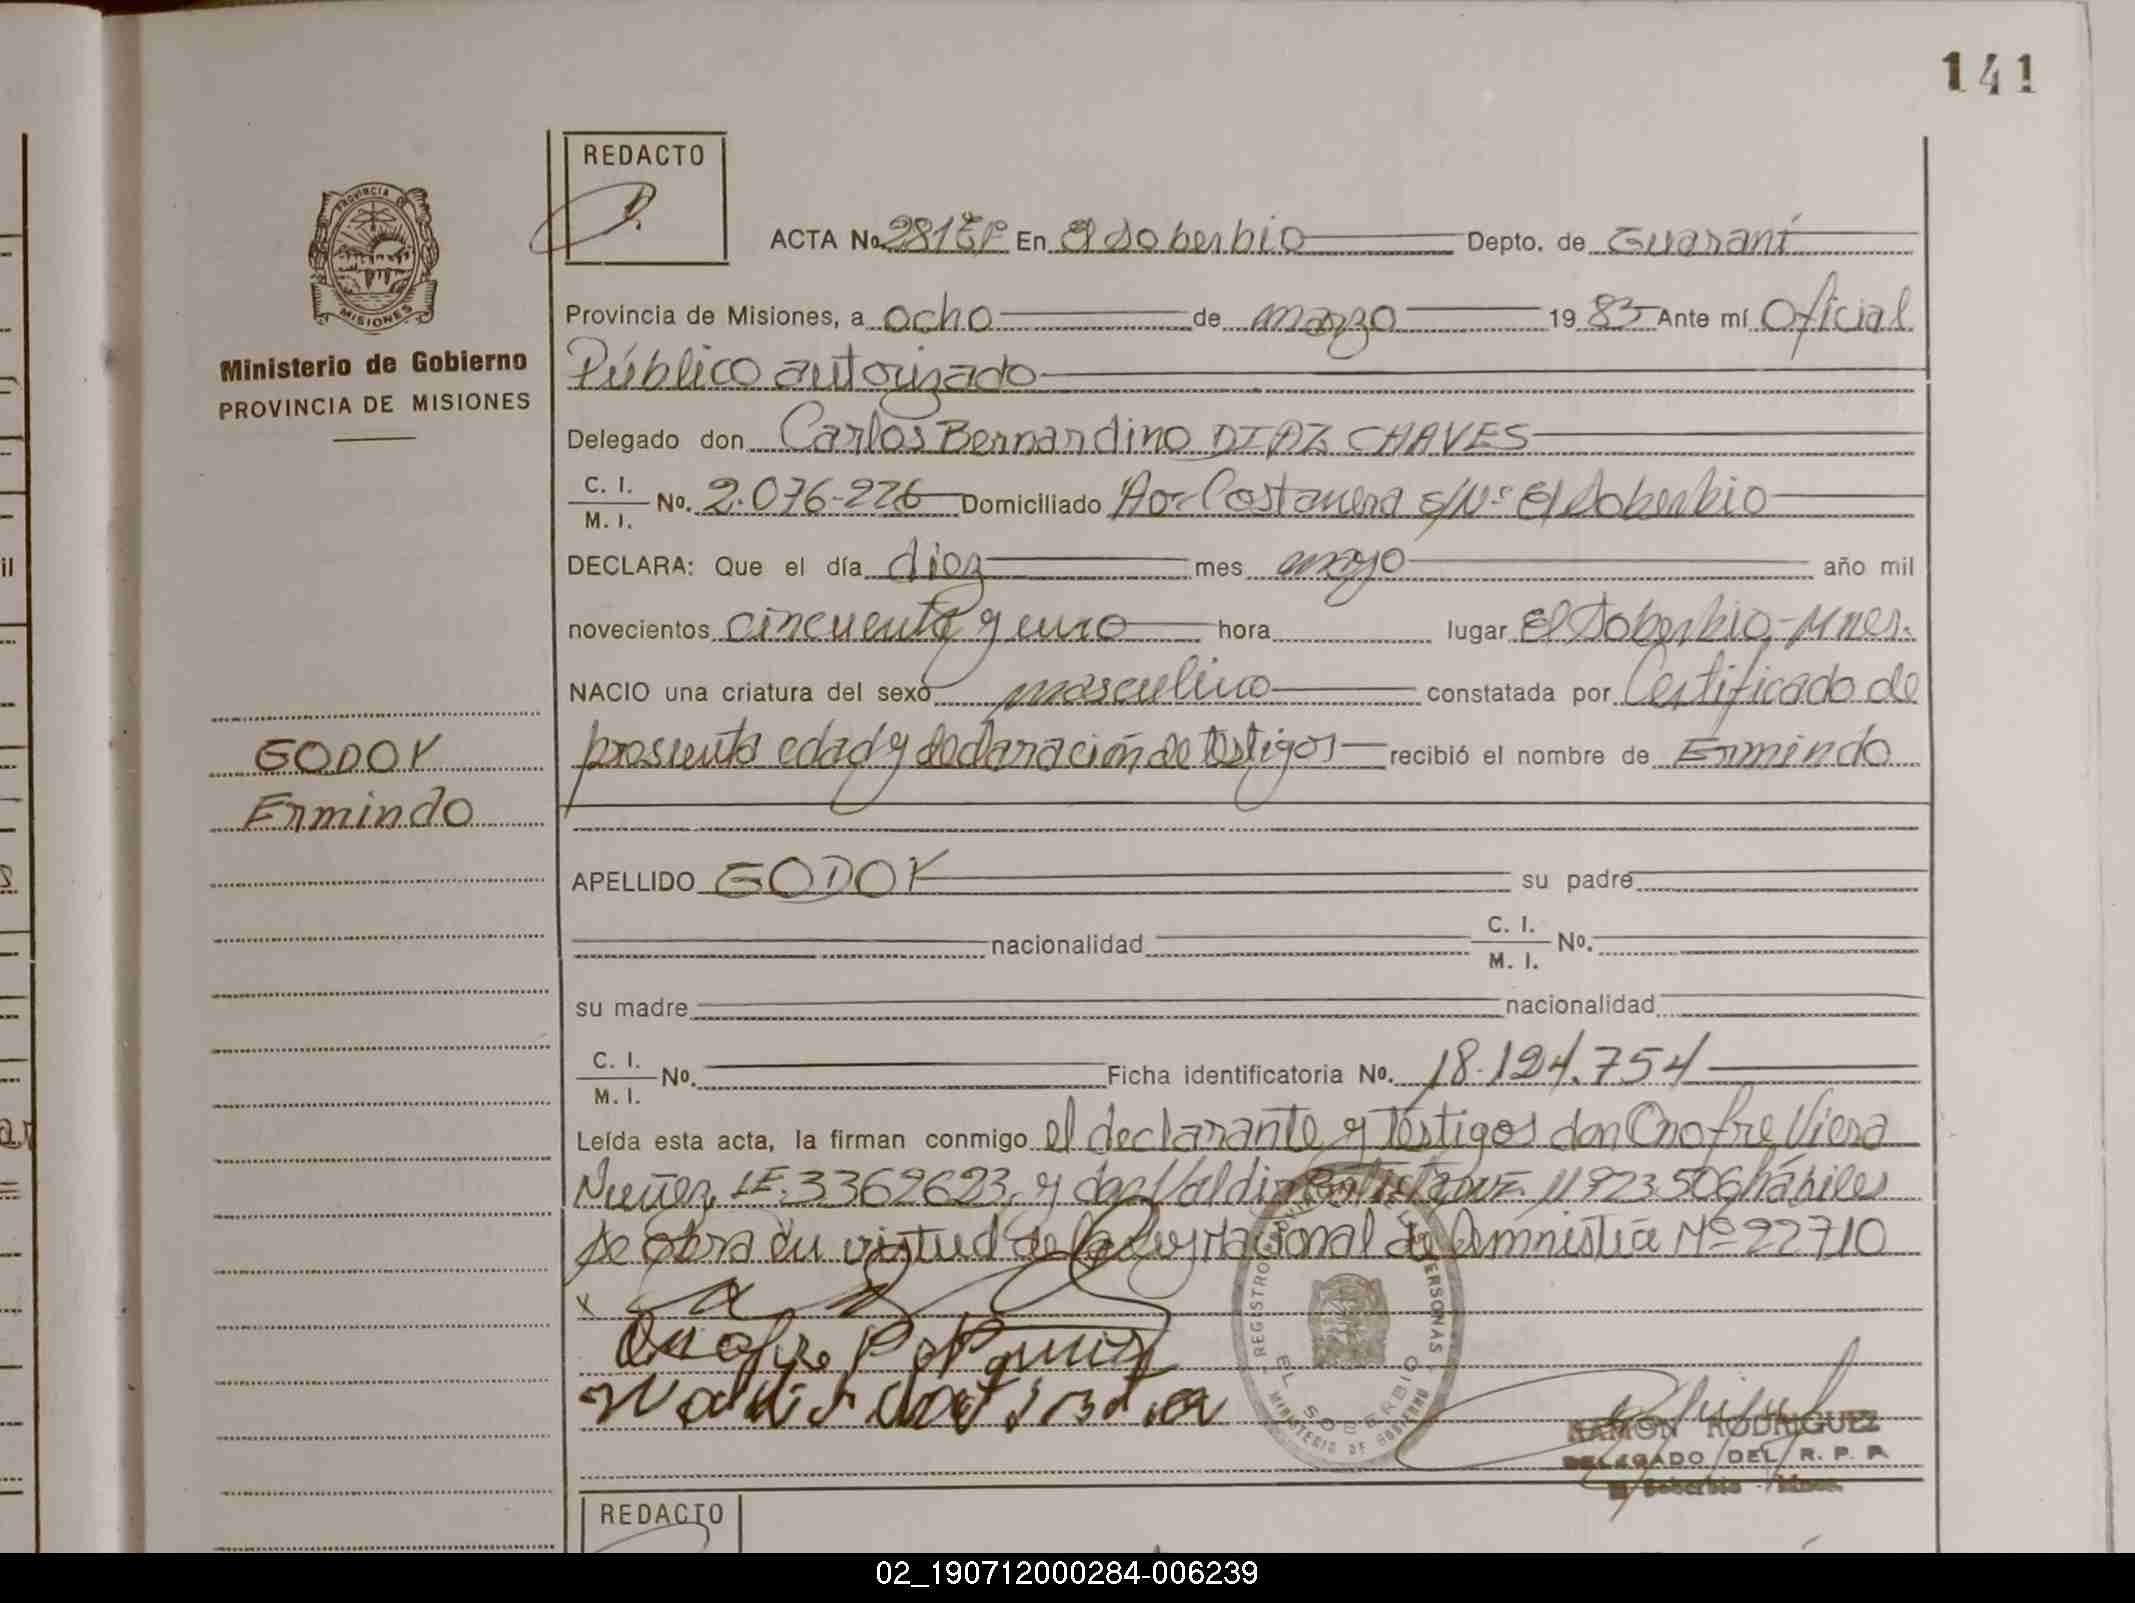 141
REDACTO
PROVINCIA DE
MISIONES
Ministerio de Gobierno
PROVINCIA DE MISIONES
ACTA No. 281 En El Soberbio Depto. de Guaraní
Provincia de Misiones, a ocho de marzo 1983 Ante mí Oficial
Público autorizado
Delegado don Carlos Bernardino DIAZ CHAVES
C. I.
M. I. No. 2.076-226 Domiciliado Av. Costanera s/Nº El Soberbio
DECLARA: Que el día diez mes mayo año mil
novecientos cincuenta y uno hora lugar El Soberbio-Mnes.
NACIO una criatura del sexo masculino constatada por Certificado de
presunta edad y declaración de testigos recibió el nombre de Ermindo
GODOY
Ermindo
APELLIDO GODOY su padre
nacionalidad C. I.
M. I. No.
su madre nacionalidad
C. I.
M. I. No. Ficha identificatoria No. 18.124.754
Leída esta acta, la firman conmigo el declarante y testigos don Onofre Viera
Nuñez LE. 3362623, y don Valdir 11923506 hábiles
Se obra en virtud de la Ley Nacional de Amnistía Nº 22710
x
Onofre
REGISTRO PROVINCIAL DE LAS PERSONAS
EL SOBERBIO
MINISTERIO DE GOBIERNO
RAMON RODRIGUEZ
DELEGADO DEL R. P. P.
El Soberbio - Mnes.
REDACTO
02_190712000284-006239